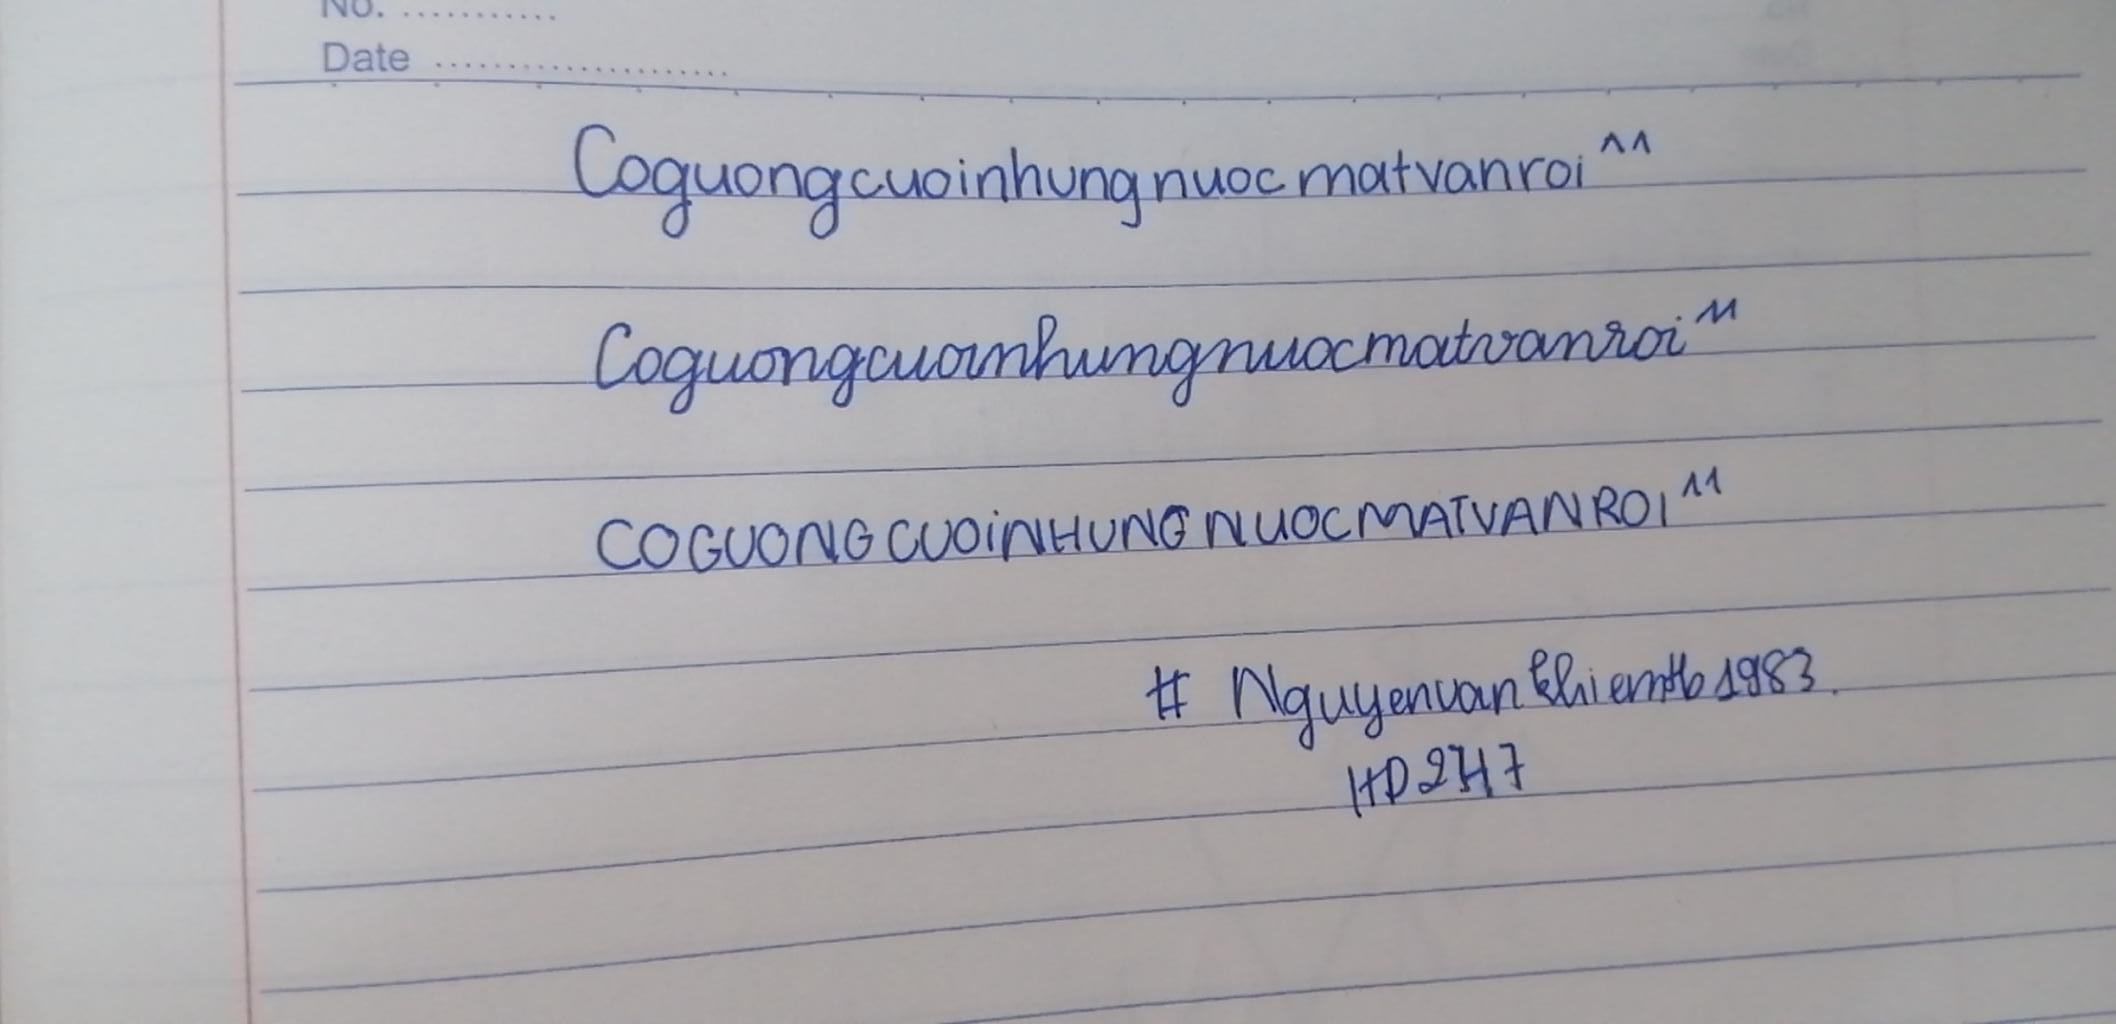 No. ...........
Date ......................
Coguongcuoinhungnuocmatvanroi^^
Coguongcuoinhungnuocmatvanroi^^
COGUONGCUOiNHUNGNUOCMATVANROI^^
# Nguyenvankhiemtb1983.
HD2747